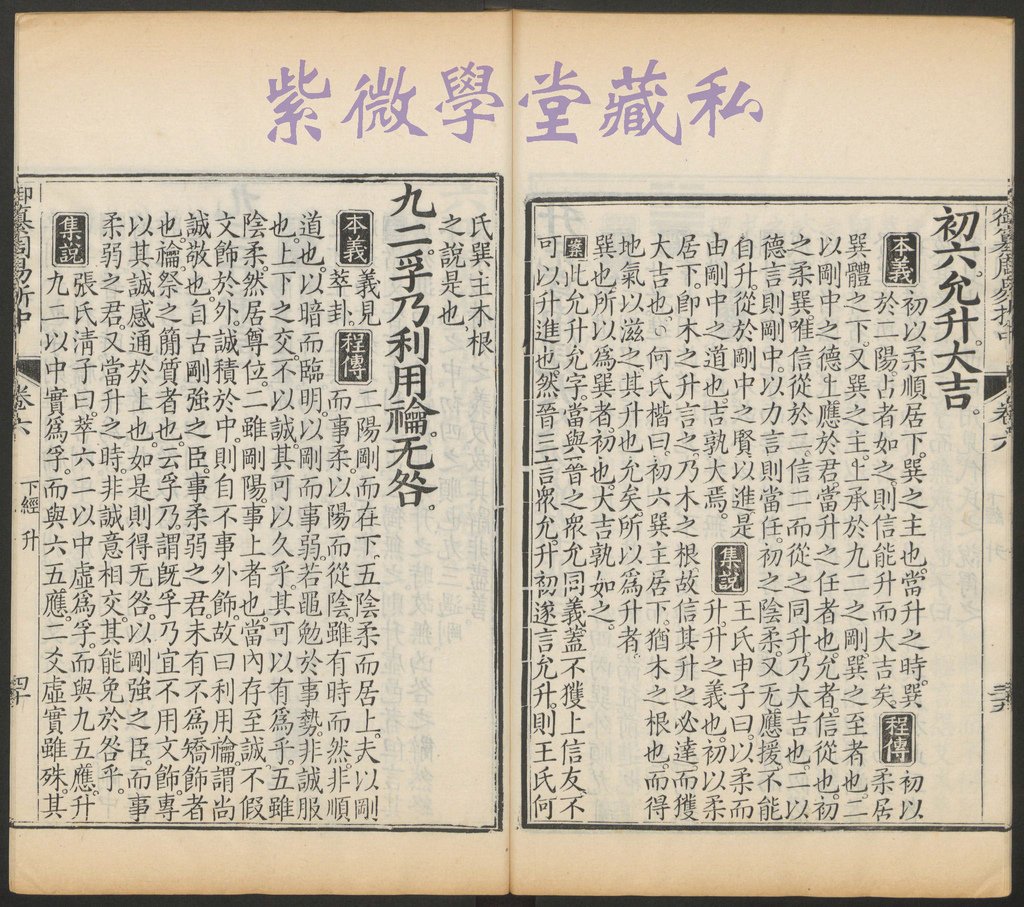 紫微學堂藏私
初六允升大吉。
本義 初以柔順居下。巽之主也。當升之時。巽
於二陽。占者如之。則信能升而大吉矣。 程傳 初以柔居
巽體之下。又巽之主。上承於九二之剛。巽之至者也。二
以剛中之德。上應於君。當升之任者也。允者。信從也。初
之柔巽。唯信從於二。信二而從之同升。乃大吉也。二以
德言則剛中。以力言則當任。初之陰柔。又无應援。不能
自升。從於剛中之賢以進。是
由剛中之道也。吉孰大焉。 集說 王氏申子曰。以柔而
升。升之義也。初以柔
居下。卽木之升言之。乃木之根。故信其升之必達。而獲
大吉也。 何氏楷曰。初六巽主居下。猶木之根也。而得
地氣以滋之。其升也允矣。所以爲升者。
巽也。所以爲巽者。初也。大吉孰如之。
案 此允升允字。當與晉之衆允同義。蓋不獲上信友。不
可以升進也。然晉三言衆允。升初遂言允升。則王氏何
氏巽主木根
之說是也。
九二孚乃利用禴无咎。
本義 義見
萃卦。 程傳 二陽剛而在下。五陰柔而居上。夫以剛
而事柔。以陽而從陰。雖有時而然。非順
道也。以暗而臨明。以剛而事弱。若黽勉於事勢。非誠服
也。上下之交。不以誠。其可以久乎。其可以有爲乎。五雖
陰柔。然居尊位。二雖剛陽。事上者也。當內存至誠。不假
文飾於外。誠積於中。則自不事外飾。故曰利用禴。謂尚
誠敬也。自古剛強之臣。事柔弱之君。未有不爲矯飾者
也。禴祭之簡質者也。云孚乃。謂旣孚乃宜不用文飾。專
以其誠感通於上也。如是則得无咎。以剛強之臣。而事
柔弱之君。又當升之時。非誠意相交。其能免於咎乎。
集說 張氏清子曰。萃六二以中虛爲孚。而與九五應。升
九二以中實爲孚。而與六五應。二爻虛實雖殊。其
卷六
下經 升